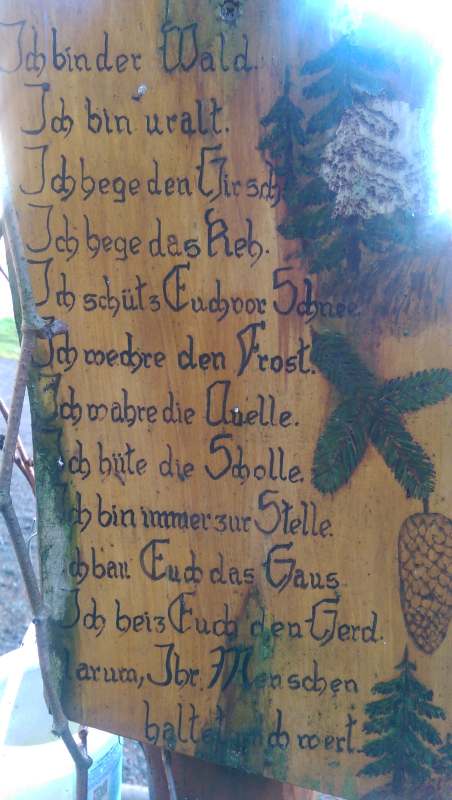 Ich bin der Wald.
Ich bin uralt.
Ich hege den Hirsch
Ich hege das Reh.
Ich schütz Euch vor Schnee
Ich wechre den Frost.
Ich wahre die Quelle.
Ich hüte die Scholle.
Ich bin immer zur Stelle.
Ich bau Euch das Haus
Ich heiz Euch den Herd.
Darum, Ihr Menschen
haltet mich wert.